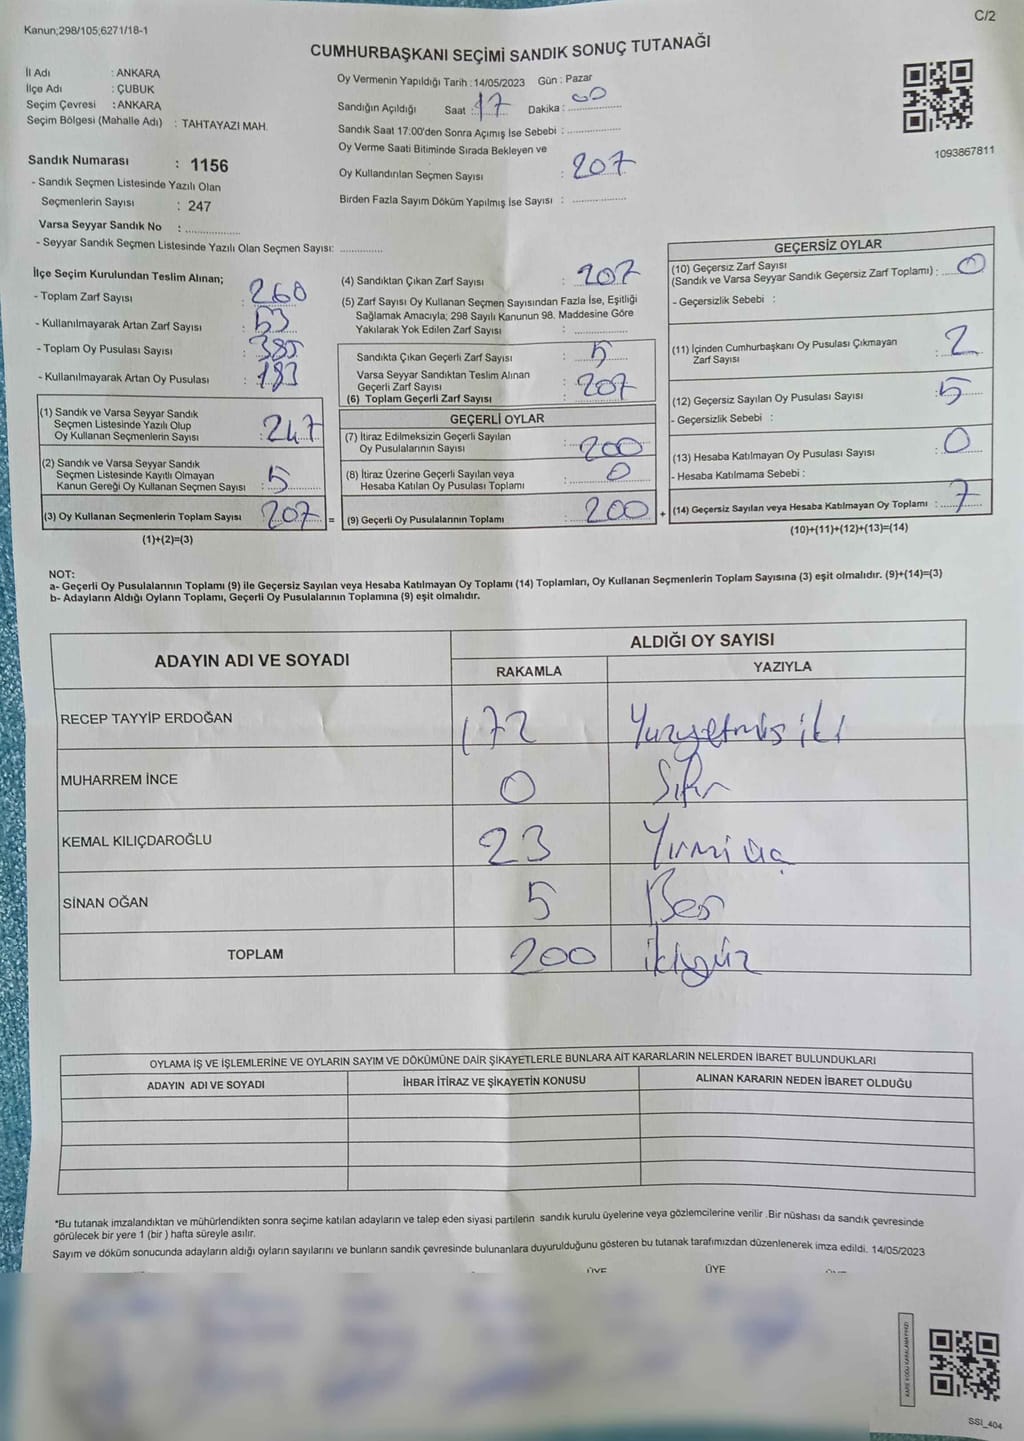 Kanun;298/105;6271/18-1
C/2
CUMHURBAŞKANI SEÇİMİ SANDIK SONUÇ TUTANAĞI
İl Adı : ANKARA
İlçe Adı : ÇUBUK
Seçim Çevresi : ANKARA
Seçim Bölgesi (Mahalle Adı) : TAHTAYAZI MAH.
Sandık Numarası : 1156
- Sandık Seçmen Listesinde Yazılı Olan
Seçmenlerin Sayısı : 247
Varsa Seyyar Sandık No : ...............
- Seyyar Sandık Seçmen Listesinde Yazılı Olan Seçmen Sayısı: ............
Oy Vermenin Yapıldığı Tarih : 14/05/2023 Gün : Pazar
Sandığın Açıldığı Saat : 17 Dakika : 00
Sandık Saat 17:00'den Sonra Açımış İse Sebebi : ...............
Oy Verme Saati Bitiminde Sırada Bekleyen ve
Oy Kullandırılan Seçmen Sayısı : 207
Birden Fazla Sayım Döküm Yapılmış İse Sayısı : ...............
1093867811
İlçe Seçim Kurulundan Teslim Alınan;
- Toplam Zarf Sayısı : 260
- Kullanılmayarak Artan Zarf Sayısı : 53
- Toplam Oy Pusulası Sayısı : 385
- Kullanılmayarak Artan Oy Pusulası : 183
(1) Sandık ve Varsa Seyyar Sandık
Seçmen Listesinde Yazılı Olup
Oy Kullanan Seçmenlerin Sayısı : 247
(2) Sandık ve Varsa Seyyar Sandık
Seçmen Listesinde Kayıtlı Olmayan
Kanun Gereği Oy Kullanan Seçmen Sayısı : 5
(3) Oy Kullanan Seçmenlerin Toplam Sayısı 207 =
(1)+(2)=(3)
(4) Sandıktan Çıkan Zarf Sayısı : 207
(5) Zarf Sayısı Oy Kullanan Seçmen Sayısından Fazla İse, Eşitliği
Sağlamak Amacıyla; 298 Sayılı Kanunun 98. Maddesine Göre
Yakılarak Yok Edilen Zarf Sayısı : ...............
Sandıkta Çıkan Geçerli Zarf Sayısı : 5
Varsa Seyyar Sandıktan Teslim Alınan
Geçerli Zarf Sayısı : 207
(6) Toplam Geçerli Zarf Sayısı
GEÇERLİ OYLAR
(7) İtiraz Edilmeksizin Geçerli Sayılan
Oy Pusulalarının Sayısı : 200
(8) İtiraz Üzerine Geçerli Sayılan veya
Hesaba Katılan Oy Pusulası Toplamı : 0
(9) Geçerli Oy Pusulalarının Toplamı : 200 +
GEÇERSİZ OYLAR
(10) Geçersiz Zarf Sayısı
(Sandık ve Varsa Seyyar Sandık Geçersiz Zarf Toplamı) : 0
- Geçersizlik Sebebi :
(11) İçinden Cumhurbaşkanı Oy Pusulası Çıkmayan
Zarf Sayısı : 2
(12) Geçersiz Sayılan Oy Pusulası Sayısı : 5
- Geçersizlik Sebebi :
(13) Hesaba Katılmayan Oy Pusulası Sayısı : 0
- Hesaba Katılmama Sebebi :
(14) Geçersiz Sayılan veya Hesaba Katılmayan Oy Toplamı : 7
(10)+(11)+(12)+(13)=(14)
NOT:
a- Geçerli Oy Pusulalarının Toplamı (9) ile Geçersiz Sayılan veya Hesaba Katılmayan Oy Toplamı (14) Toplamları, Oy Kullanan Seçmenlerin Toplam Sayısına (3) eşit olmalıdır. (9)+(14)=(3)
b- Adayların Aldığı Oyların Toplamı, Geçerli Oy Pusulalarının Toplamına (9) eşit olmalıdır.
ADAYIN ADI VE SOYADI ALDIĞI OY SAYISI
RAKAMLA YAZIYLA
RECEP TAYYİP ERDOĞAN 172 Yüzyetmiş iki
MUHARREM İNCE 0 Sıfır
KEMAL KILIÇDAROĞLU 23 Yirmi üç
SİNAN OĞAN 5 Beş
TOPLAM 200 ikiyüz
OYLAMA İŞ VE İŞLEMLERİNE VE OYLARIN SAYIM VE DÖKÜMÜNE DAİR ŞİKAYETLERLE BUNLARA AİT KARARLARIN NELERDEN İBARET BULUNDUKLARI
ADAYIN ADI VE SOYADI İHBAR İTİRAZ VE ŞİKAYETİN KONUSU ALINAN KARARIN NEDEN İBARET OLDUĞU
*Bu tutanak imzalandıktan ve mühürlendikten sonra seçime katılan adayların ve talep eden siyasi partilerin sandık kurulu üyelerine veya gözlemcilerine verilir .Bir nüshası da sandık çevresinde
görülecek bir yere 1 (bir ) hafta süreyle asılır.
Sayım ve döküm sonucunda adayların aldığı oyların sayılarını ve bunların sandık çevresinde bulunanlara duyurulduğunu gösteren bu tutanak tarafımızdan düzenlenerek imza edildi. 14/05/2023
ÜYE ÜYE
SSI_404